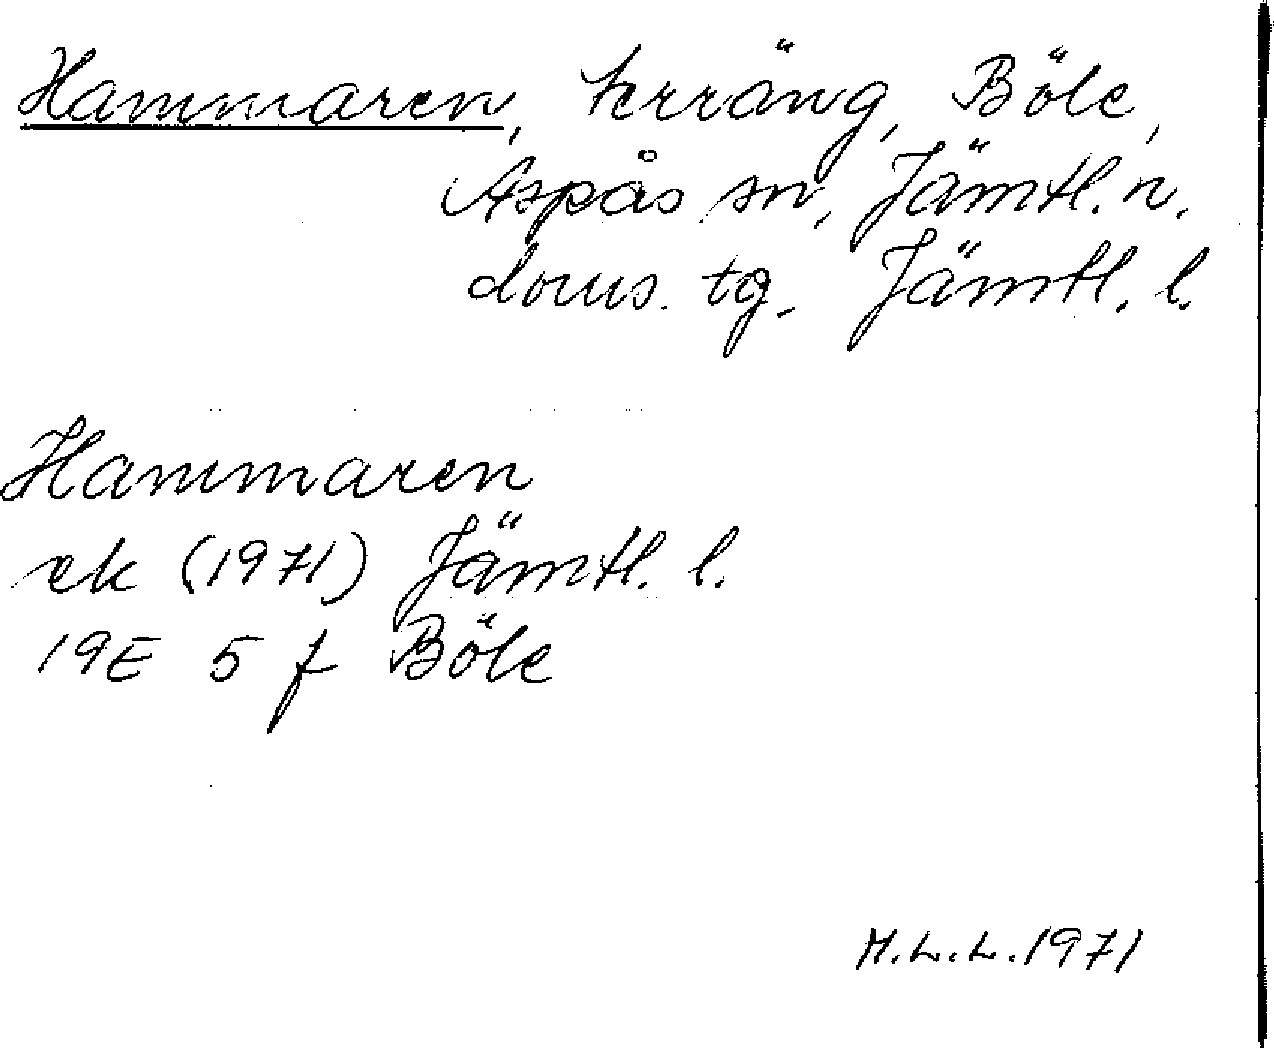 Hammaren, terräng, Böle,
Aspås sn, Jämtl. n.
doms. tg, Jämtl. l.
Hammaren
ek (1971) Jämtl. l.
19E 5 f Böle
M.L.L. 1971